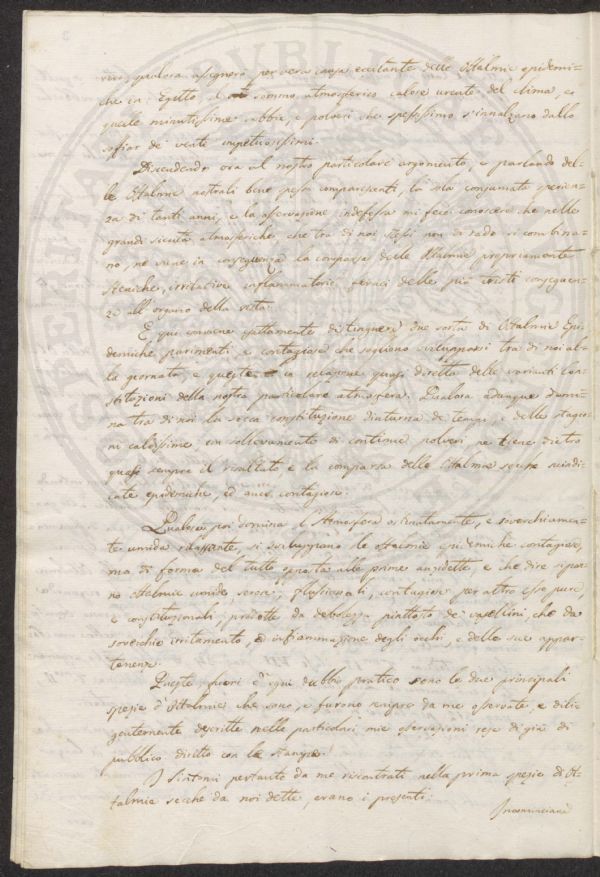 vivo, qualora assegnero per vera causa eccitante delle Ottalmie epidemi-
che in Egitto il sommo atmosferico calore urente del clima, e
quelle minutissime sabbie, e polveri che spessissimo s'innalzano dallo
soffiar de' venti impetuosissimi.
Discendendo ora al nostro particolare argomento, e parlando del-
le Ottalmie nostrali bene spesso comparscenti, la sola consumata sperien-
za di tanti anni, e la osservazione indefessa mi fece conoscere che nelle
grandi siccità atmosferiche, che tra di noi stessi non di rado si combina-
no, ne viene in conseguenza la comparsa delle Ottalmie propriamente
steniche, irritative infiammatorie, feraci delle più tristi conseguen-
ze all'organo della vista.
E qui conviene esattamente distinguere due sorta di Ottalmie Epi-
demiche, parimenti, e contagiose che sogliono svilupparsi tra di noi al-
la giornata, e queste in relazione quasi diretta delle varianti con-
stituzioni della nostra particolare atmosfera. Qualora adunque domi-
na tra di noi la secca constituzione diuturna de' tempi, e delle stagio-
ni caldissime con sollevamento di continue polveri, ne tiene dietro
quasi sempre il risultato e la comparsa delle Ottalmie secche suindi-
cate epidemiche, ed anco contagiose.
Qualora poi domina l'Atmosfera ostinatamente, e soverchiamen-
te umida rilassante, si sviluppano le Ottalmie epidemiche contagiose,
ma di forma del tutto opposta alle prime anzidette, e che dire si pos-
sono Ottalmie umide, sierose, contagiose per altro esse pure,
e constituzionali, prodotte da debolezza piuttosto de' vasellini, che da
soverchio irritamento, ed infiammazione degli occhi, e delle sue appar-
tenenze.
Queste, fuori d'ogni dubbio pratico sono le due principali
spezie d'Ottalmie, che sono, e furono sempre da me osservate, e dili-
gentemente descritte nelle particolari mie osservazioni rese di già di
pubblico diritto con le stampe.
I Sintomi pertanto da me riscontrati nella prima spezie di Ot-
talmie secche da noi dette, erano i presenti:
Incominciava